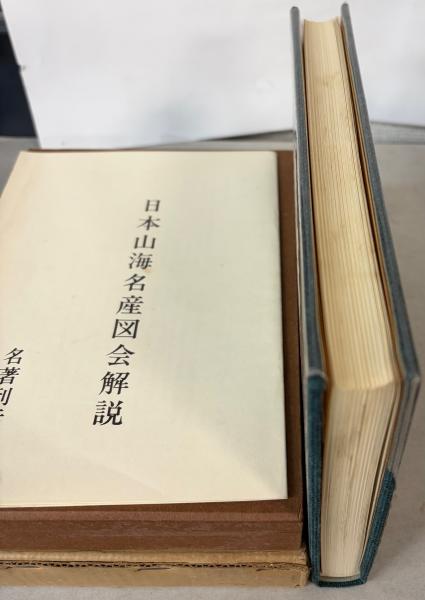 日本山海名産図会解説
名著刊